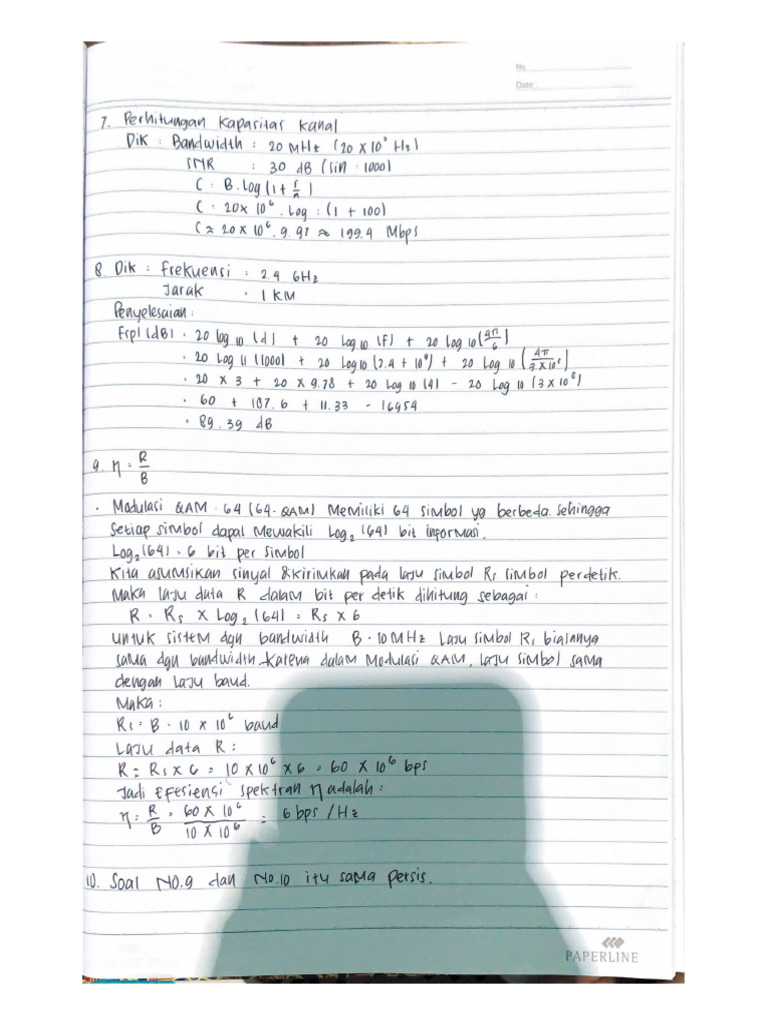 No
Date :
7. Perhitungan Kapasitas Kanal
Dik : Bandwidth : 20 MHz (20 x 10⁶ Hz)
SNR : 30 dB (sin . 1000)
C : B. Log (1 + S/n)
C : 20 x 10⁶ . Log : (1 + 100)
C ≈ 20 x 10⁶ . 9.97 ≈ 199.4 Mbps
8. Dik : Frekuensi : 2.4 GHz
Jarak . 1 KM
Penyelesaian :
Fspl (dB) . 20 log 10 (d) + 20 Log 10 (F) + 20 Log 10 (4π/c)
. 20 Log 11 (1000) + 20 Log 10 (2.4 + 10⁹) + 20 Log 10 (4π/3 x 10⁸)
. 20 x 3 + 20 x 9.78 + 20 Log 10 (4) - 20 Log 10 (3 x 10⁶)
. 60 + 187.6 + 11.33 - 16954
. 89.39 dB
9. η = R/B
. Modulasi QAM - 64 (64-QAM) Memiliki 64 simbol yg berbeda. Sehingga
Setiap simbol dapat Mewakili Log₂ (64) bit informasi.
Log₂ (64) = 6 bit per simbol
Kita asumsikan sinyal dikirimkan pada laju simbol Rs simbol perdetik.
Maka laju data R dalam bit per detik dihitung sebagai :
R = Rs x Log₂ (64) = Rs x 6
untuk sistem dgn bandwidth B = 10 MHz Laju simbol Rs biasanya
sama dgn bandwidth. Karena dalam Modulasi QAM, laju simbol sama
dengan laju baud.
Maka :
Rs = B = 10 x 10⁶ baud
Laju data R :
R = Rs x 6 = 10 x 10⁶ x 6 = 60 x 10⁶ bps
Jadi Efesiensi spektran η adalah :
η = R/B = 60 x 10⁶/10 x 10⁶ = 6 bps / Hz
10. Soal No.9 dan No.10 itu sama persis.
PAPERLINE